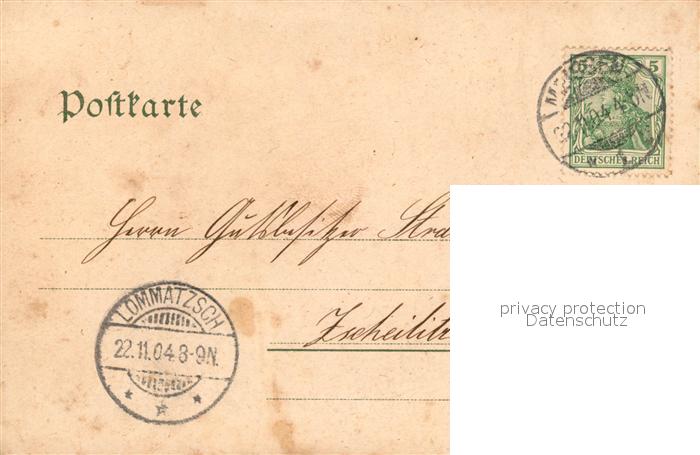 Postkarte
5 5
DEUTSCHES REICH
Herrn Gutsbesitzer
LOMMATZSCH
22.11.04.8-9N.
privacy protection
Datenschutz